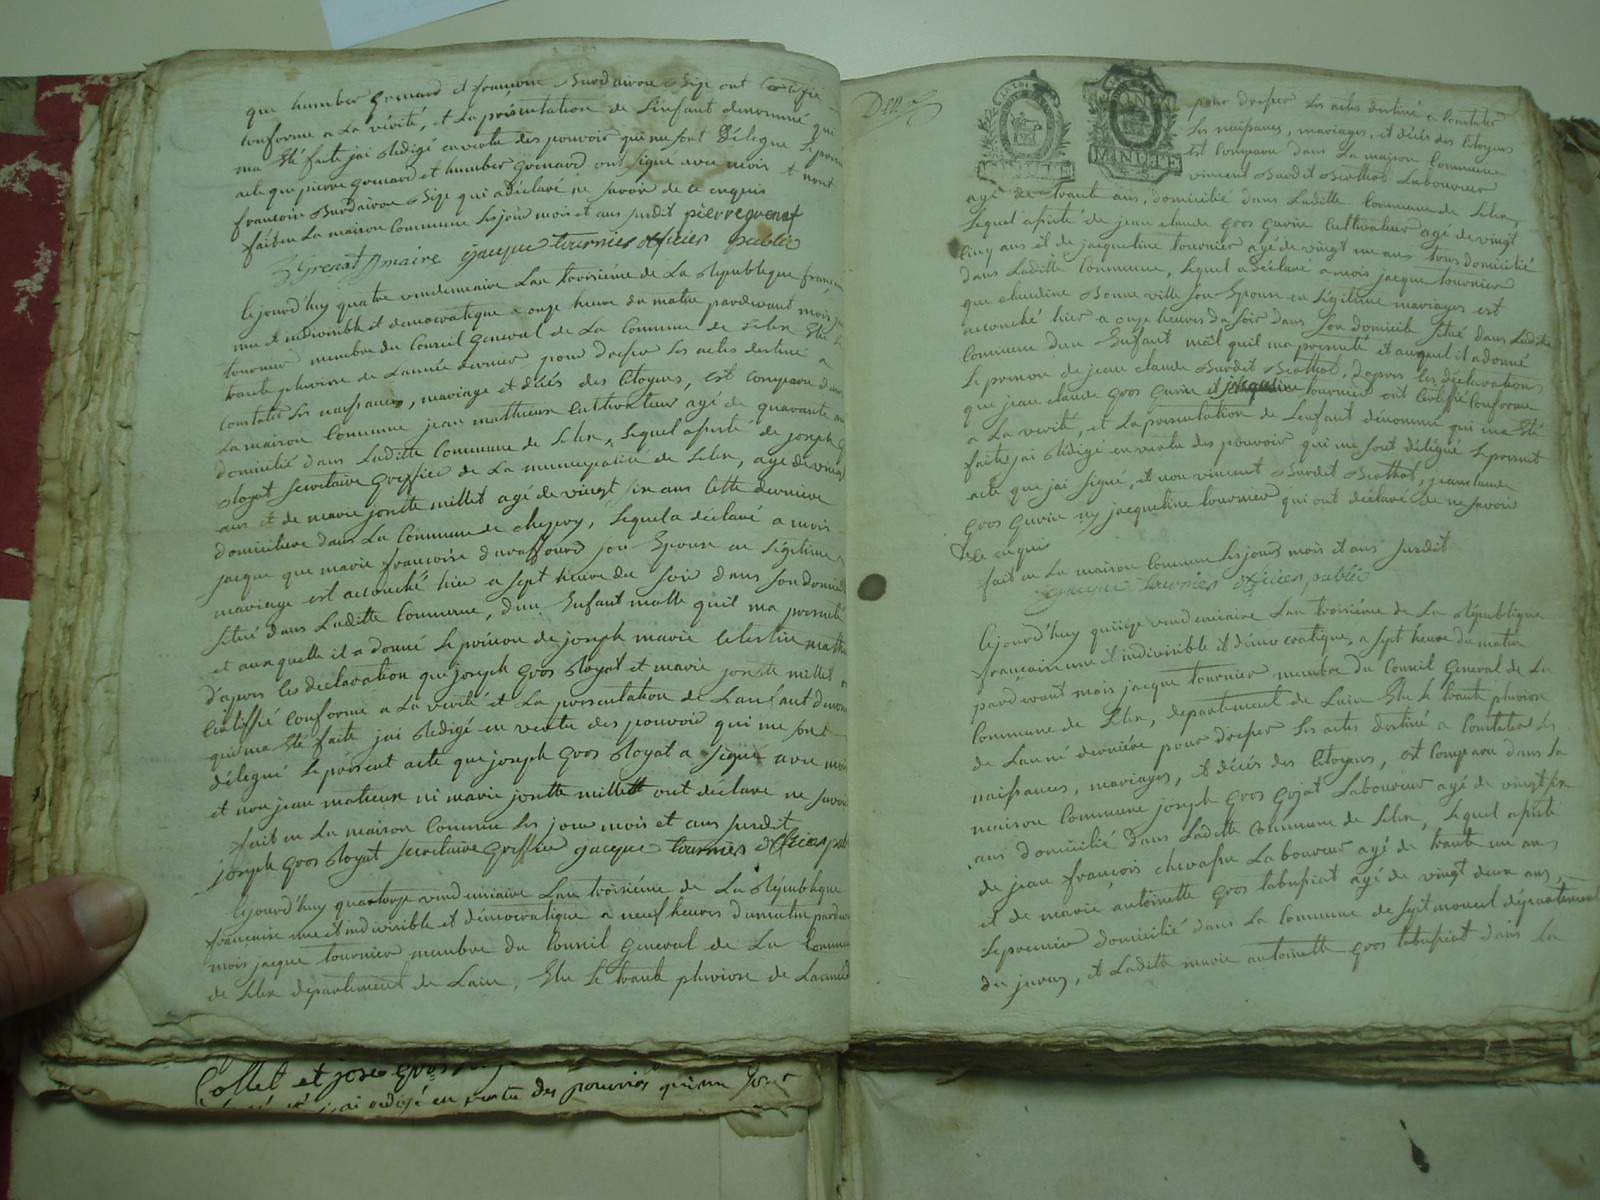 que humber grenard et françoise Burdairon Sige ont Certifié
Conforme a La vérité, et La présentation de Lenfant denommé qui
ma Eté faite jai Rédigé en vertu des pouvoir qui me sont Délégué Le present
acte que pierre grenard et humber grenard ont signé avec mois et nont
françoise Burdairon Sige qui a déclaré ne savoir de ce enquis
fait en La maison Commune Les jour mois et ans susdit pierre grenat
Grenat maire jacque tournier officier public
Cejourd'huy quatre vindemiaire Lan troisiéme de La République française
une et indivisible et democratique a onze heure du matin pardevant mois jacque
tournier membre du Conseil General de La Commune de Lelex Elû le
trante pluviose de L'année dernier pour dresser Les actes destiné a
Constater Les naissances, mariage et décés des Citoyens, est Comparu dans
La maison Commune jean matthieux Cultivateur agé de quarante ans
domicilié dans Laditte Commune de Lelex, Lequel assisté de joseph Gros
Royat Secretaire Greffier de La municipalité de Lelex, agé de vingt
ans et de marie josette millet agé de vingt six ans Cette derniere
domiciliée dans La Commune de chezery, Lequel a déclaré a mois
jacque que marie françoise duraffourd son Epouse en Légitime
mariage est accouché hier a sept heure du soir dans son domicile
situé dans Laditte Commune, d'un Enfant malle qu'il ma presenté
et auxquelle il a donné Le prénon de joseph marie Celestin matthieux
d'apres Les declaration que joseph Gros Royat et marie josette millet ont
Certiffié Conforme a La vérité et La presentation de Lanfant denommé
qui ma Eté faite jai Redigé en vertu des pouvoir qui me sont
délegué Le présent acte que joseph Gros Royat a signé avec mois
et non jean matieux ni marie josette millett ont déclare ne savoir
fait en La maison Commune Les jour mois et ans susdit
joseph Gros Royat Secretaire Greffier jacque tournier officier public
Cejourd'huy quatorze vindemiaire Lan troisiéme de La République
française une et indivisible et démocratique a neuf heures du matin pardevant
mois jacque tournier membre du Conseil General de La Commune
de Lelex departement de Lain, Elu Le trante pluviose de Lannée
Collet et jose Gros
jai redigé en vertu des pouvoirs qui me sont
LA LOI
MINUTE
pour dresser Les actes destiné a Constater
Les naissances, mariages, et décés des Citoyens
est Comparu dans La maison Commune
vincent Burdit Berthod Laboureur
agé de trante ans, domicilié dans Laditte Commune de Lelex,
Lequel assisté de jean claude gros gurin Cultivateur agé de vingt
Cinq ans et de jacqueline tournier agé de vingt un ans tous domicilié
dans Laditte Commune, Lequel a déclaré a mois jacque tournier
que claudine Bonne ville son Epouse en Légitime mariages est
accouché hier a onze heures du soir dans son domicile situé dans Laditte
Commune d'un Enfant malt quil ma presenté et auquel il a donné
Le prenon de jean claude Burdit Berthod, Dapres Les déclarations
que jean claude gros gurin et jacqueline tournier ont Certifié Conforme
a La verité, et La présentation de Lenfant dénommé qui ma Eté
faite jai Rédigé en vertu des pouvoir qui me sont délégué Le present
acte que jai signé, et non vincent Burdit Berthod, jean claude
gros gurin ny jacqueline tournier qui ont déclaré de ne savoir
de ce enquis
fait en La maison Commune Les jours mois et ans susdit
jacque tournier officier public
Cejourd'huy quinze vindemiaire Lan troisiéme de La République
française une et indivisible et démocratique, a sept heure du matin
pardevant mois jacque tournier membre du Conseil General de La
Commune de Lelex, departement de Lain Elu Le trante pluviose
de Lanné derniére pour dresser Les actes destiné a Constater Les
naissances, mariages, et décés des Citoyens, est Comparu dans La
maison Commune joseph gros gojat Laboureur agé de vingt six
ans domicilié dans Laditte Commune de Lelex, Lequel assisté
de jean françois chevassu Laboureur agé de trante un ans
et de marie antoinette gros tabussiat agé de vingt deux ans,
Le premier domicilié dans La Commune de sept moncel département
du juras, et Laditte marie antoinette gros tabussiat dans La